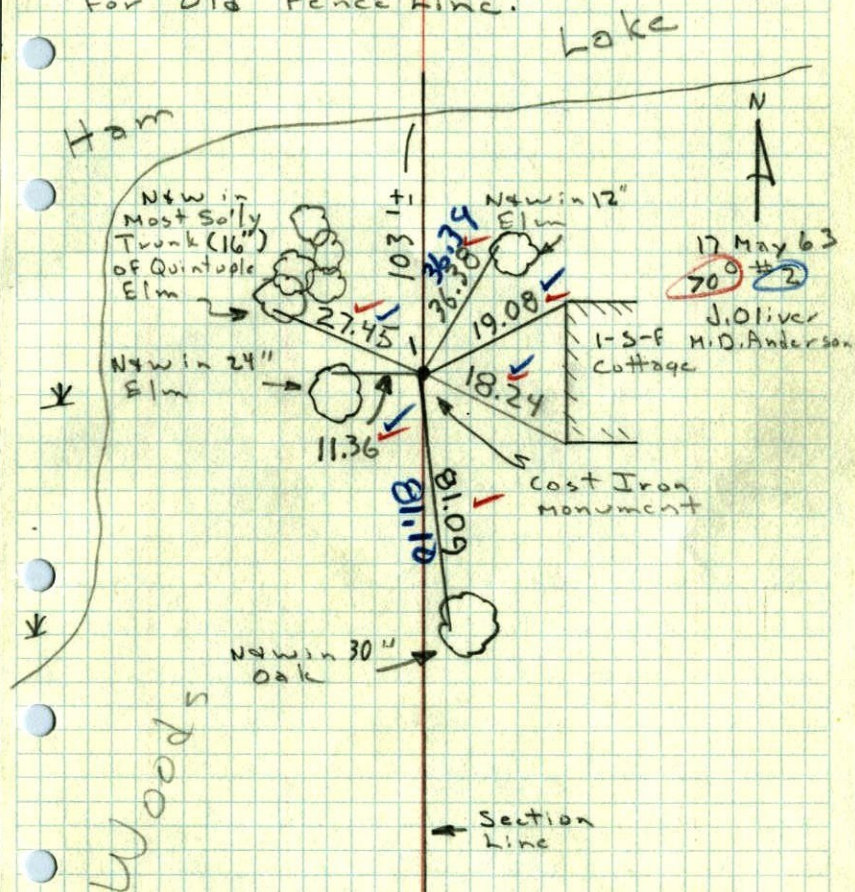 For Old Fence Line.
Lake
Ham
N
N&W in
Most So'ly
Trunk (16")
of Quintuple
Elm
103 ±
36.34
36.38
N&W in 12"
Elm
17 May 63
70° #2
J. Oliver
M.D. Anderson
27.45
1
19.08
1-S-F
Cottage
N&W in 24"
Elm
18.24
11.36
Cast Iron
Monument
81.10
81.09
N&W in 30"
Oak
Woods
Section
Line